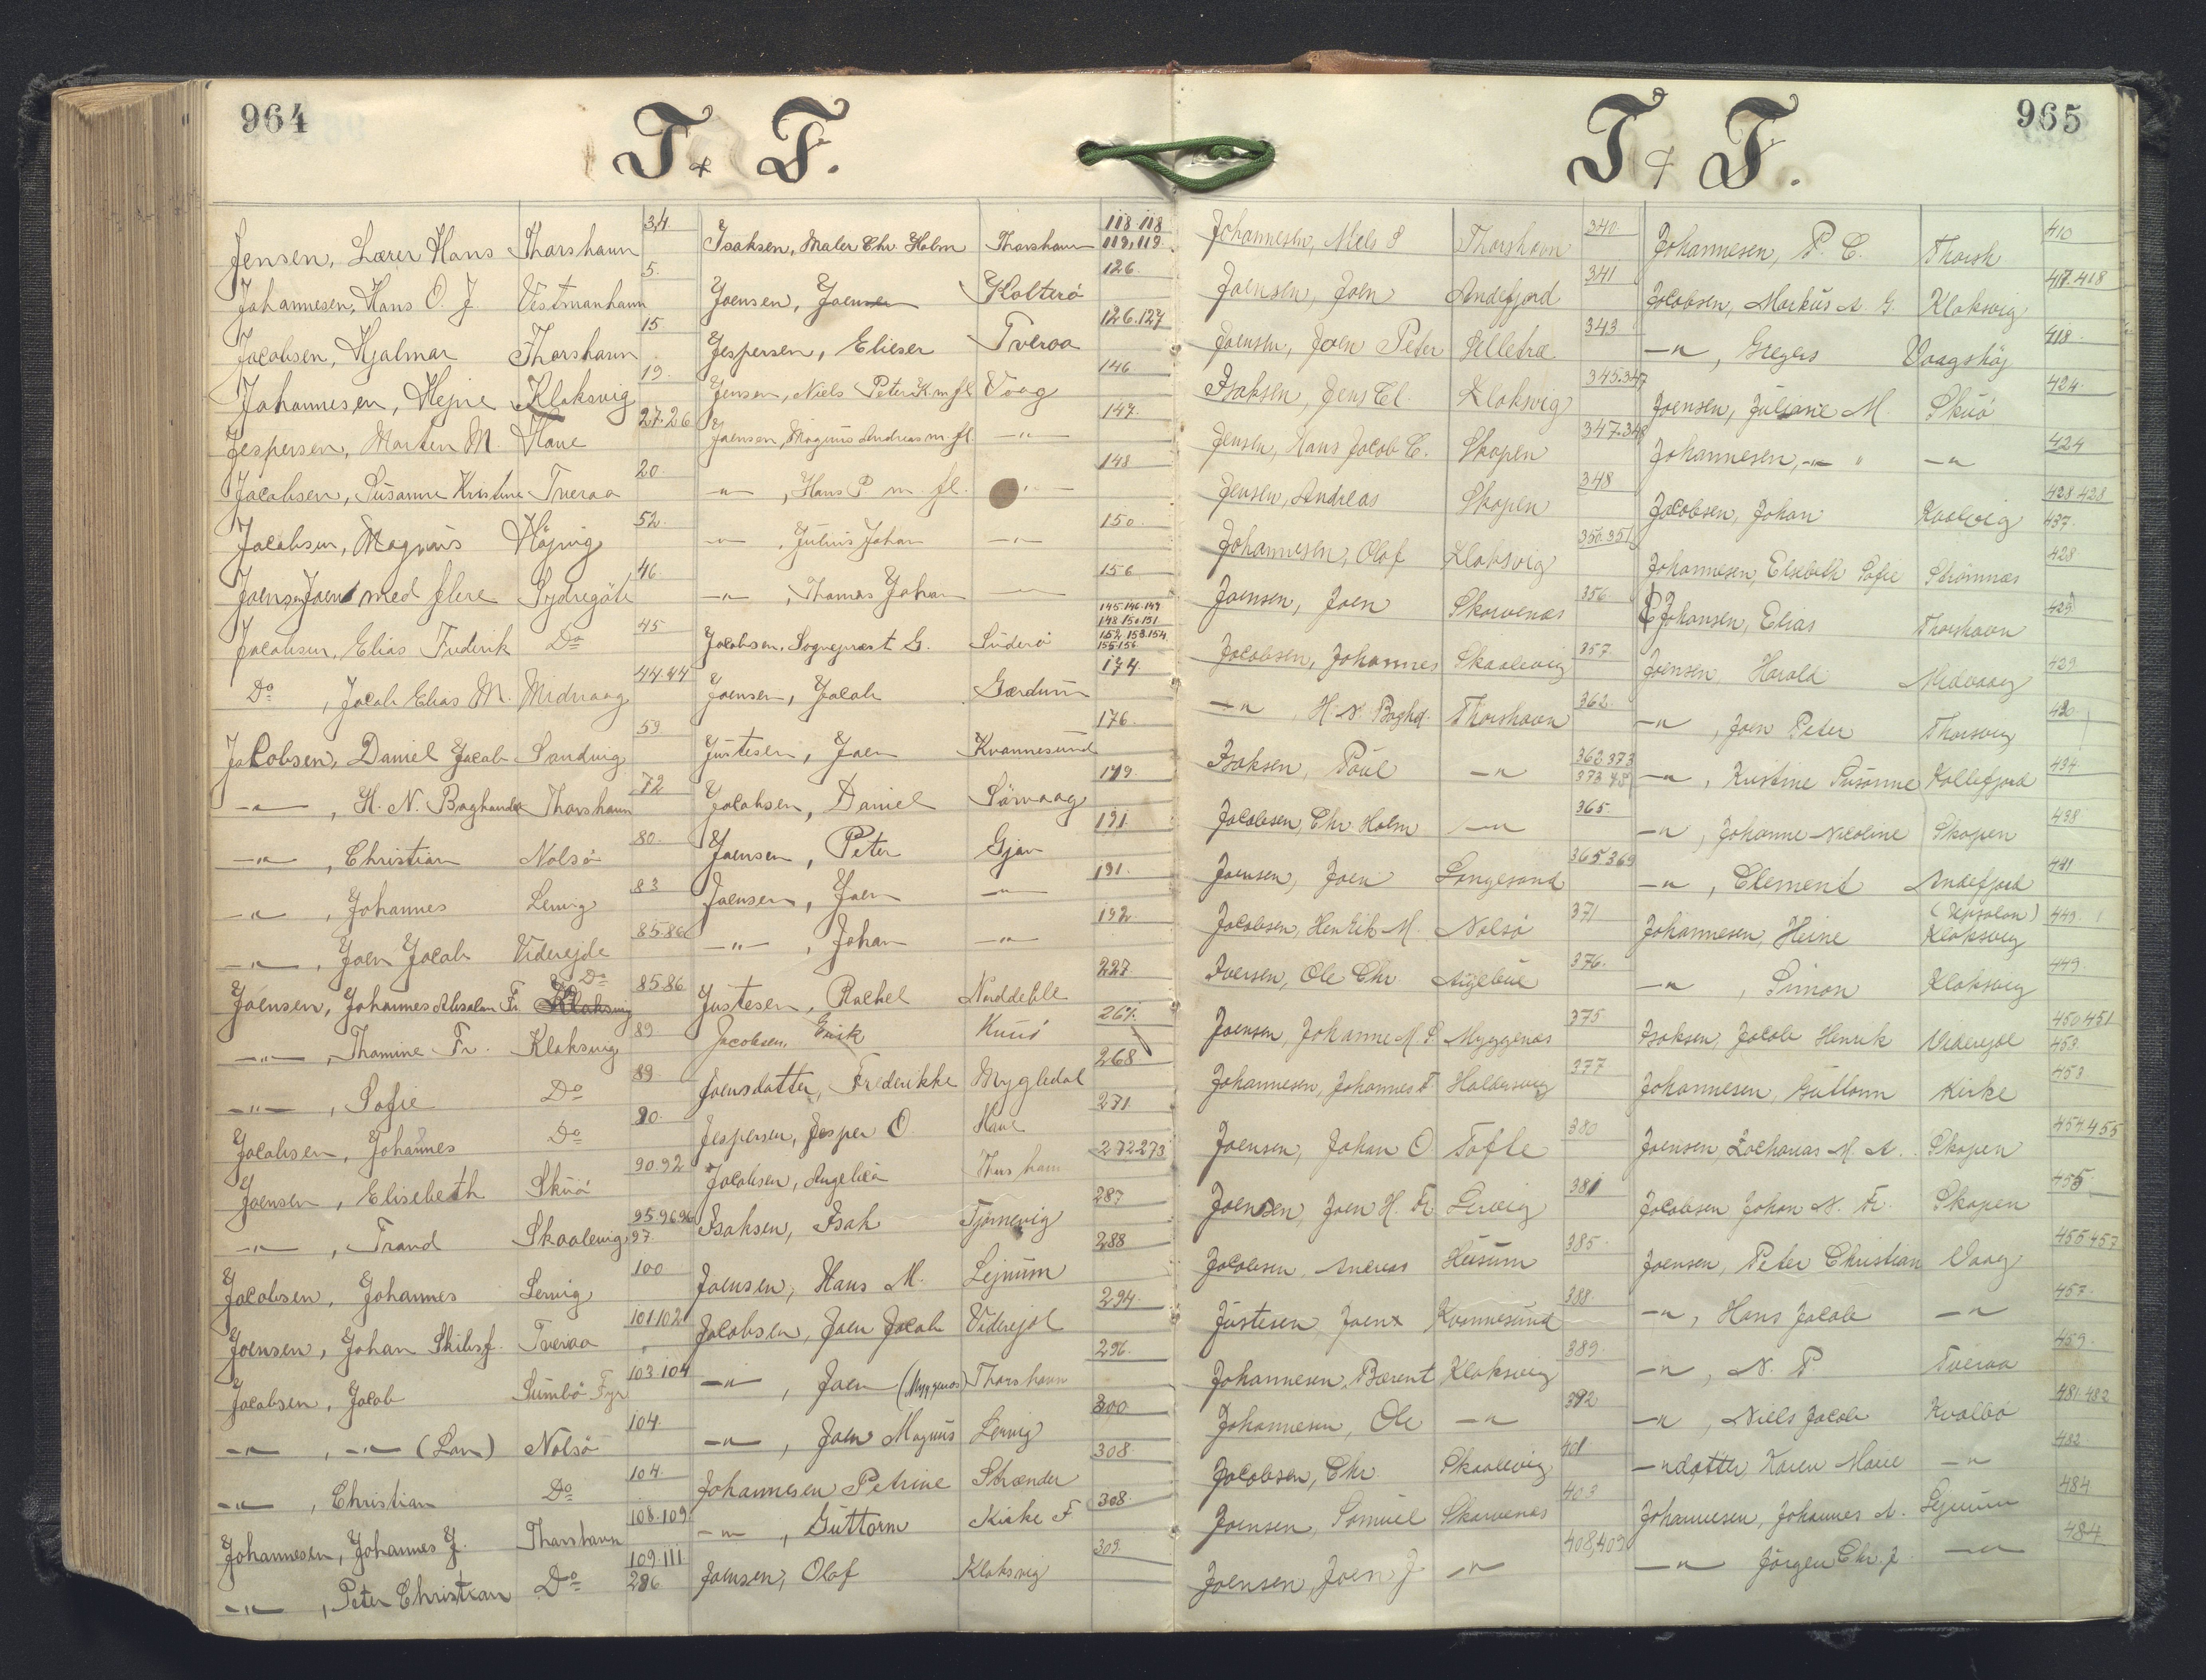 964
J & J.
Jensen, Lærer Hans Thorshavn 34
Johannesen, Hans O. J. Vestmanhavn 5.
Jacobsen, Hjalmar Thorshavn 15
Johannesen, Hejne Klaksvig 19.
Jespersen, Morten M. Hove 27.26
Jacobsen, Susanne Kristine Tveraa 20.
Jacobsen, Magnus Höjvig 52.
Joensen Joen med flere Sydregöte 46.
Jacobsen, Elias Frederik Do 45
Do, Jacob Elias M. Midvaag 44.44
Jacobsen, Daniel Jacob Sandvig 59.
—"—, H. N. Boghandler Thorshavn 72
—"—, Christian Nolsö 80.
—"—, Johannes Lervig 83
—"—, Joen Jacob Viderejde 85.86
Joensen, Johannes Absalon Fr. Klaksvig Do 85.86
—"—, Thomine Fr. Klaksvig 89
—"—, Sofie Do 89.
Jacobsen, Johannes Do 90.
Joensen, Elisebeth Skuö 90.92
—"—, Trand Skaalevig 95.96.96 97.
Jacobsen, Johannes Lervig 100
Joensen, Johan Skibsf. Tveraa 101.102
Jacobsen, Jacob Sumbö Fyr 103.104
—"—, —"— (Lön) Nolsö 104.
—"—, Christian Do 104.
Johannesen, Johannes J. Thorshavn 108.109
—"—, Peter Christian Do 109.111 286
Isaksen, Maler Chr. Holm Thorshavn 118.118 119.119.
Joensen, Joensen Kolterö 126.
Jespersen, Elieser Tveraa 126.127
Jensen, Niels Peter K. m fl Vaag 146.
Joensen, Magnus Andreas m. fl. —"— 147.
—"—, Hans P m fl. —"— 148
—"—, Julius Johan —"— 150.
—"—, Thomas Johan — 156
Jacobsen, Sognepræst G. Suderö 145.146.147 148.150.151 152.153.154 155.156
Joensen, Jacob Gærdum 174
Justesen, Joen Kvannesund 176.
Jacobsen, Daniel Sörvaag 179.
Joensen, Peter Gjov 191
Joensen, Joen —"— 191.
—"—, Johan —"— 192.
Justesen, Rachel Norddeble 227.
Jacobsen, Erik Kunö 267.
Joensdatter, Frederikke Mygledal 268
Jespersen, Jesper O. Hove 271.
Jacobsen, Angelica Thorshavn 272 273
Isaksen, Isak Tjörnevig 287
Joensen, Hans M. Lejnum 288
Jacobsen, Joen Jacob Viderejde 294.
—"—, Joen (Myggenæs) Thorshavn 296.
—"—, Joen Magnus Lervig 300
Johannesen Petrine Strænder 308
—"—, Guttorm Kirke F 308.
Joensen, Olaf Klaksvig 309.
965
J & J.
Johannesen, Niels S Thorshavn 340
Joensen, Joen Andefjord 341
Joensen, Joen Peter Selletræ 343
Isaksen, Jens El. Klaksvig 345.347
Jensen, Hans Jacob C. Skopen 347.348
Jensen, Andreas Skopen 348
Johannesen, Olaf Klaksvig 350.351
Joensen, Joen Skorvenæs 356
Jacobsen, Johannes Skaalevig 357
—"—, H. N. Boghd. Thorshavn 362
Isaksen, Poul —"— 362.373
Jacobsen, Chr Holm —"— 365
Joensen, Joen Langesand 365.369
Jacobsen, Henrik M. Nolsö 371
Iversen, Ole Chr 376.
Joensen, Johanne M. S. Myggenæs 375
Johannesen, Johannes F. Haldersvig 377
Joensen, Johan O Tofte 380
Joensen, Joen H. Fr. Lervig 381
Jacobsen, Andreas Husum 385
Justesen Joen Kvannesund 388.
Johannesen, Bærent Klaksvig 389.
Johannesen, Ole —"— 392
Jacobsen, Chr. Skaalevig 401
Joensen, Samuel Skorvenæs 403
Joensen, Joen J —"— 408,409
Johannesen, P. C. Thorsh 410
Jacobsen, Markus A. G. Klaksvig 417.418
—"—, Gregers Vaagshöj 418
Joensen, Juliane M. Skuö 424.
Johannesen, —"— " —"— 424
Jacobsen, Johan Kvalvig 428 428 437.
Johannesen, Elsebeth Sofie Strömnæs 428
Johansen, Elias Thorshavn 429
Joensen Harald Midvaag 429
—"—, Joen Peter Thorsvig 430
—"—, Kristine Susanne Kollefjord 434
—"—, Johanne Nicoline Skopen 438
—"—, Clement Andefjord 441
Johannesen, Heine (Upsalon) Klaksvig 449.
—"—, Simon Klaksvig 449
Isaksen, Jacob Henrik Viderejde 450 451 453.
Johannesen, Guttorm Kirke 453
Joensen, Zacharias M. A. Skopen 454.455
Jacobsen Johan N. Fr. Skopen 455
Joensen, Peter Christian Vaag 455 457
—"—, Hans Jacob —"— 457.
—"—, N. P. Tveraa 459
—"—, Niels Jacob Kvalbö 481.482
—"—datter, Karen Marie —"— 482
Johannesen, Johannes A. Lejnum 484
—"— Jörgen Chr. J. —"— 484